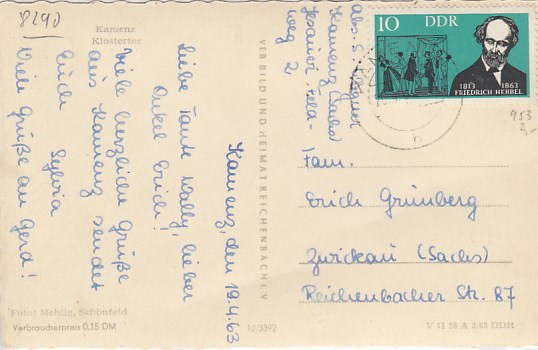 8290
Kamenz
Klostertor
Kamenz, den 19.4.63
Liebe Tante Wally, lieber
Onkel Erich!
Viele herzliche Grüße
aus Kamenz sendet
Euch
Sylvia
Viele Grüße an Gerd!
Foto: Mehlig, Schönfeld
Verbraucherpreis 0,15 DM
VEB BILD UND HEIMAT REICHENBACH I. V
12/3392
Abs.: S.
Kamenz (Sachs)
Jesauer Feld-
weg 2
10 DDR
1813 1863
FRIEDRICH HEBBEL
953
2,-
Fam.
Erich Grünberg
Zwickau (Sachs)
Reichenbacher Str. 87
V 11 28 A 2/63 DDR